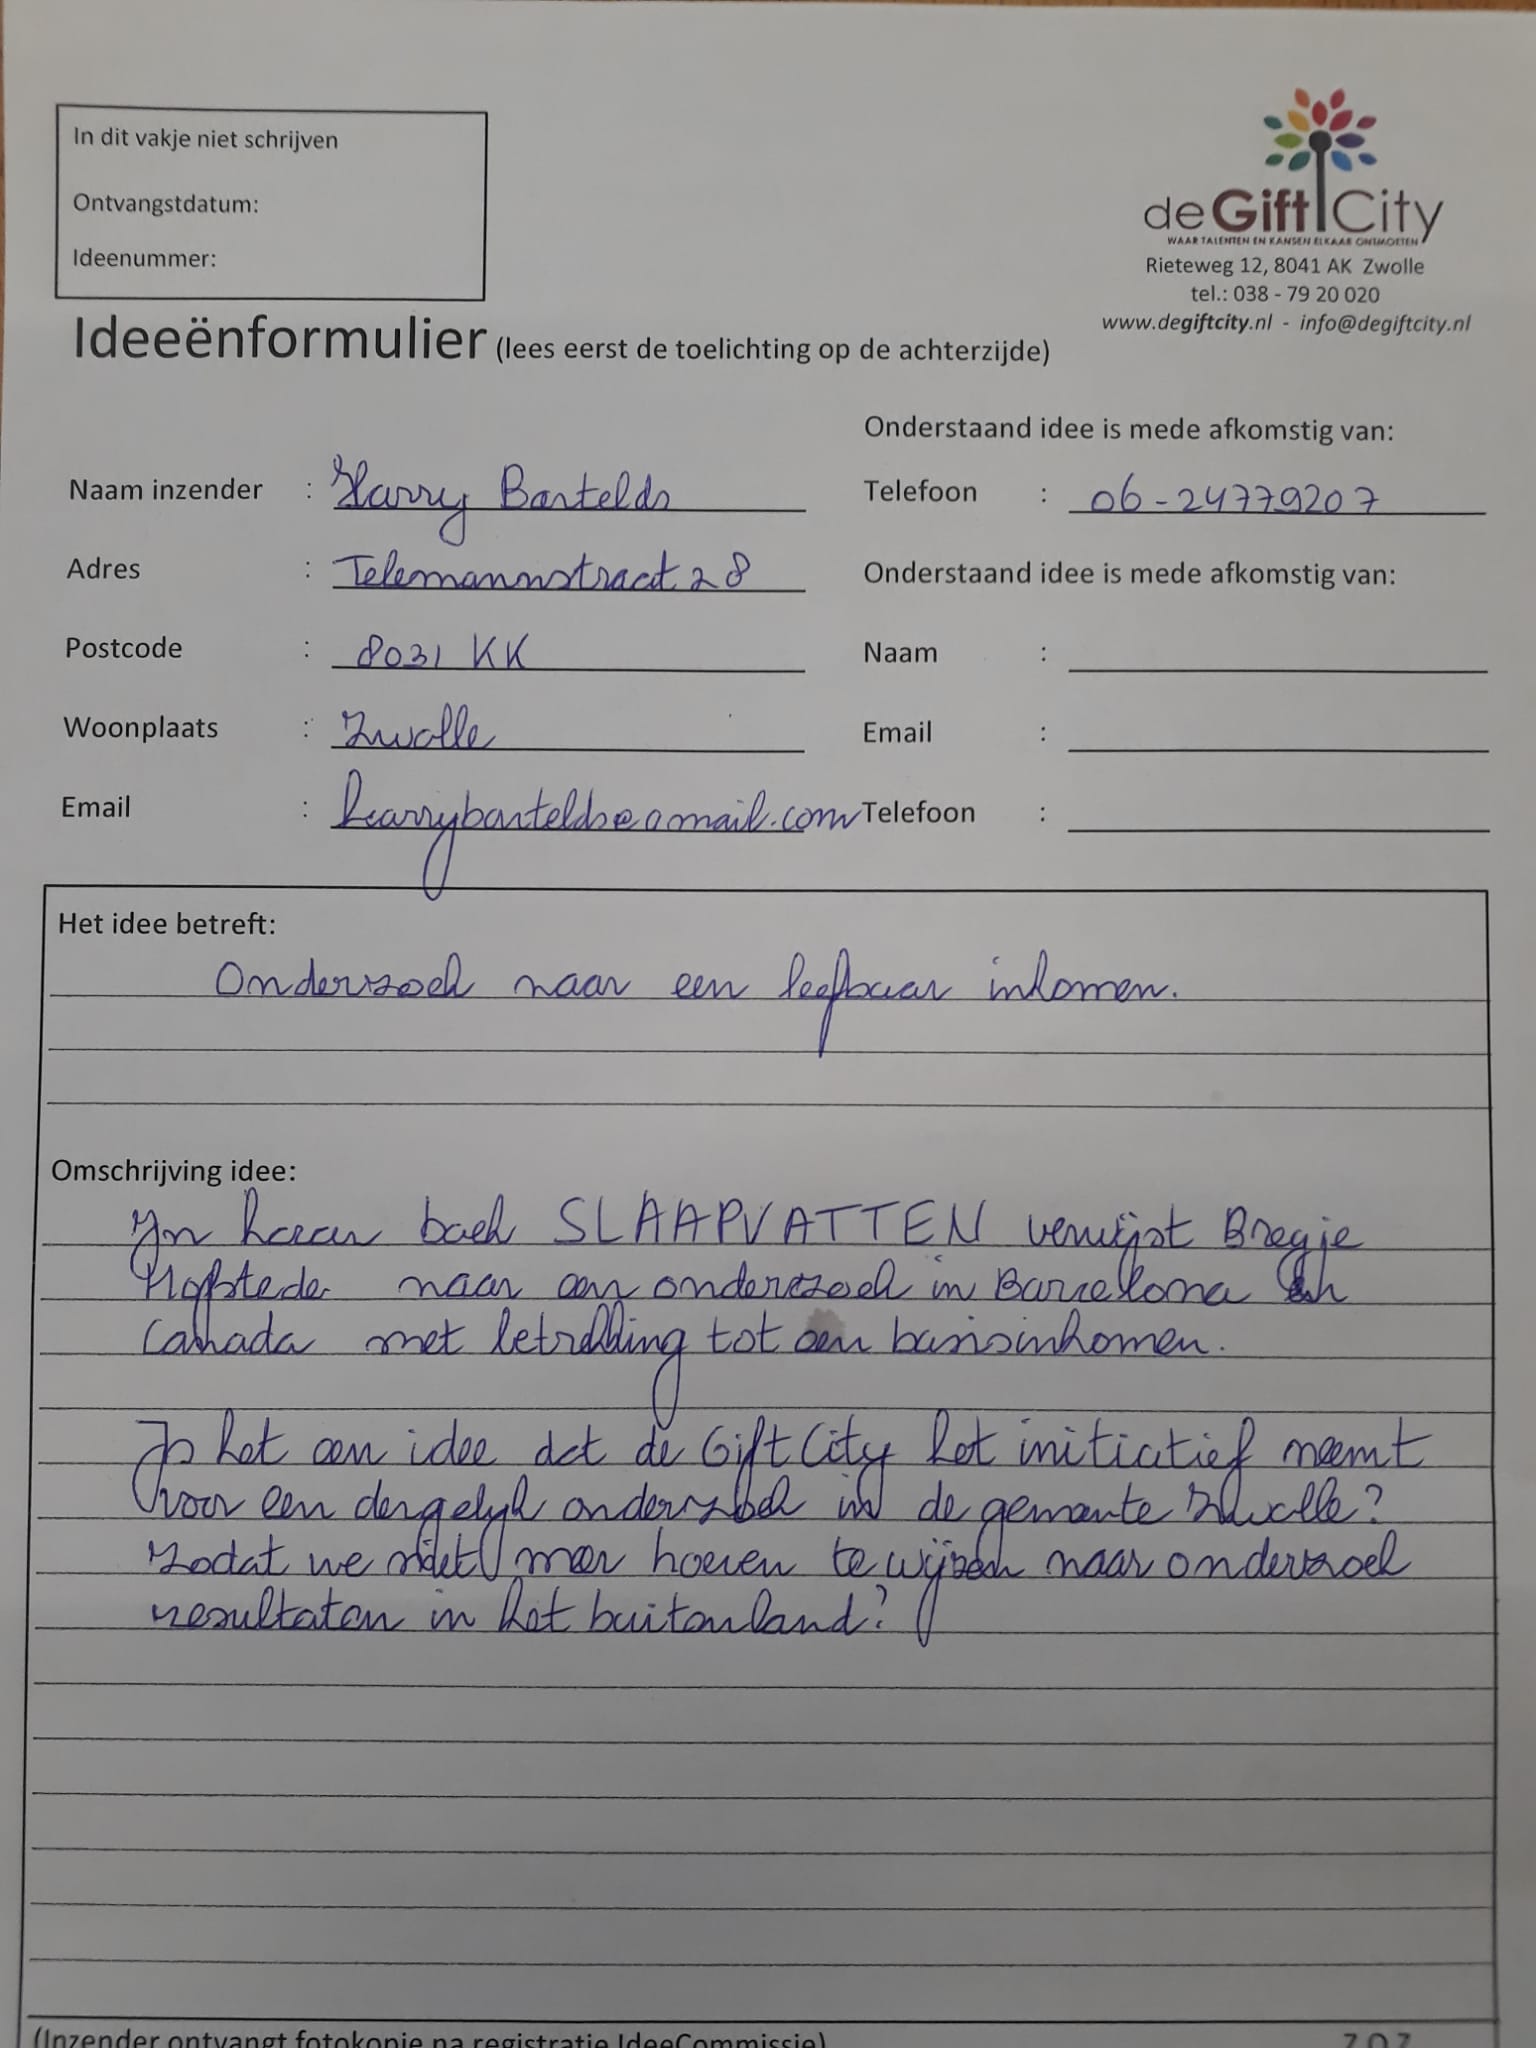 In dit vakje niet schrijven
Ontvangstdatum:
Ideenummer:
de Gift City
WAAR TALENTEN EN KANSEN ELKAAR ONTMOETEN
Rieteweg 12, 8041 AK Zwolle
tel.: 038 - 79 20 020
www.degiftcity.nl - info@degiftcity.nl
Ideeënformulier (lees eerst de toelichting op de achterzijde)
Onderstaand idee is mede afkomstig van:
Naam inzender : Harry Bartelds
Telefoon : 06-24779207
Adres : Telemannstraat 28
Onderstaand idee is mede afkomstig van:
Postcode : 8031 KK
Naam :
Woonplaats : Zwolle
Email :
Email : harrybartelds@gmail.com
Telefoon :
Het idee betreft:
Onderzoek naar een leefbaar inkomen.
Omschrijving idee:
In haar boek SLAAPVATTEN verwijst Bregje
Hofstede naar een onderzoek in Barcelona en
Canada met betrekking tot een basisinkomen.
Is het een idee dat de GiftCity het initiatief neemt
voor een dergelijk onderzoek in de gemeente Zwolle?
Zodat we niet meer hoeven te wijzen naar onderzoek
resultaten in het buitenland?
(Inzender ontvangt fotokopie na registratie IdeeCommissie)
ZOZ